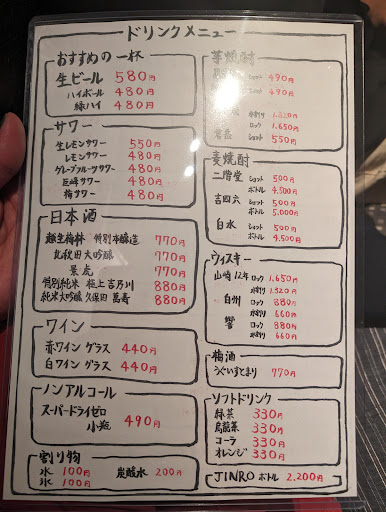 ドリンクメニュー
おすすめの一杯
生ビール 580円
ハイボール 480円
緑ハイ 480円
サワー
生レモンサワー 550円
レモンサワー 480円
グレープフルーツサワー 480円
巨峰サワー 480円
梅サワー 480円
日本酒
越生梅林 特別本醸造 770円
北秋田大吟醸 770円
景虎 770円
特別純米 極上吉乃川 880円
純米大吟醸 久保田 萬寿 880円
ワイン
赤ワイン グラス 440円
白ワイン グラス 440円
ノンアルコール
スーパードライゼロ
小瓶 490円
割り物
水 100円 炭酸水 200円
氷 100円
芋焼酎
ショット 490円
ショット 490円
水割り 1.320円
ロック 1.650円
ショット 550円
麦焼酎
二階堂 ショット 500円
ボトル 4.500円
吉四六 ショット 500円
ボトル 5.000円
白水 ショット 500円
ボトル 4.500円
ウィスキー
山崎12年 ロック 1.650円
水割り 1.320円
白州 ロック 880円
水割り 660円
響 ロック 880円
水割り 660円
梅酒
うぐいすとまり 770円
ソフトドリンク
緑茶 330円
烏龍茶 330円
コーラ 330円
オレンジ 330円
JINRO ボトル 2,200円